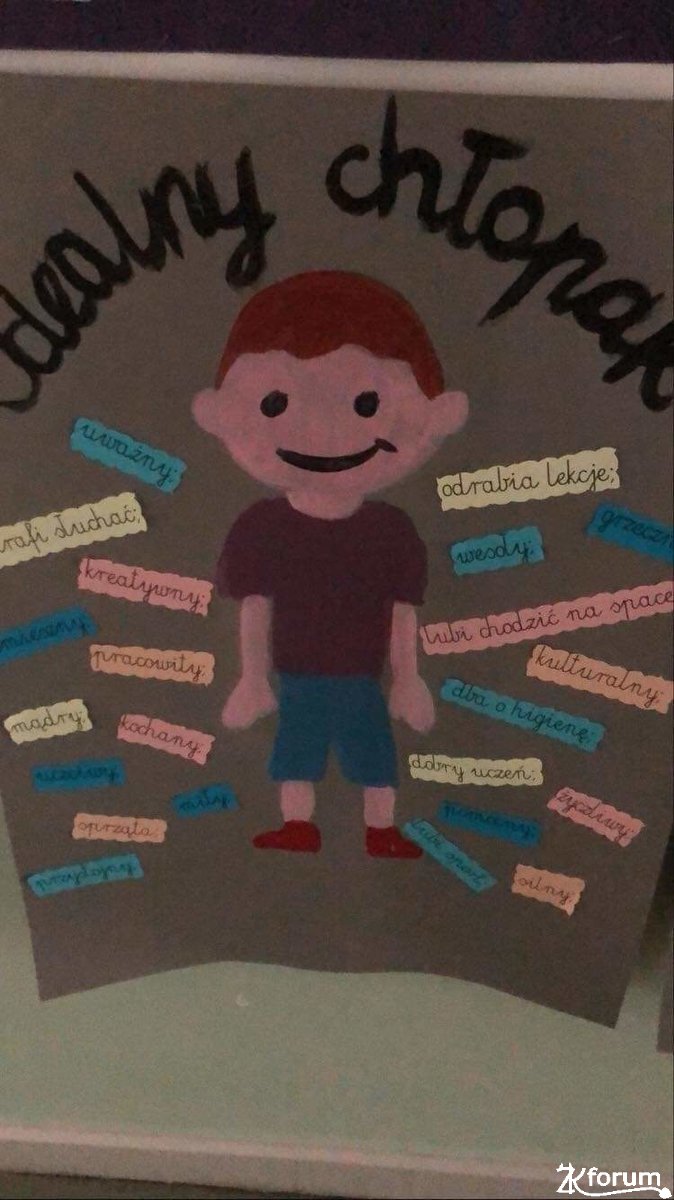 idealny chłopak
uważny;
rafi słuchać;
kreatywny;
pracowity;
mądry;
kochany;
uczciwy
miły
sprząta;
przystojny
odrabia lekcje;
grzeczn
wesoły;
lubi chodzić na space
kulturalny;
dba o higienę;
dobry uczeń;
pomocny
życzliwy;
lubi
silny;
2Kforum